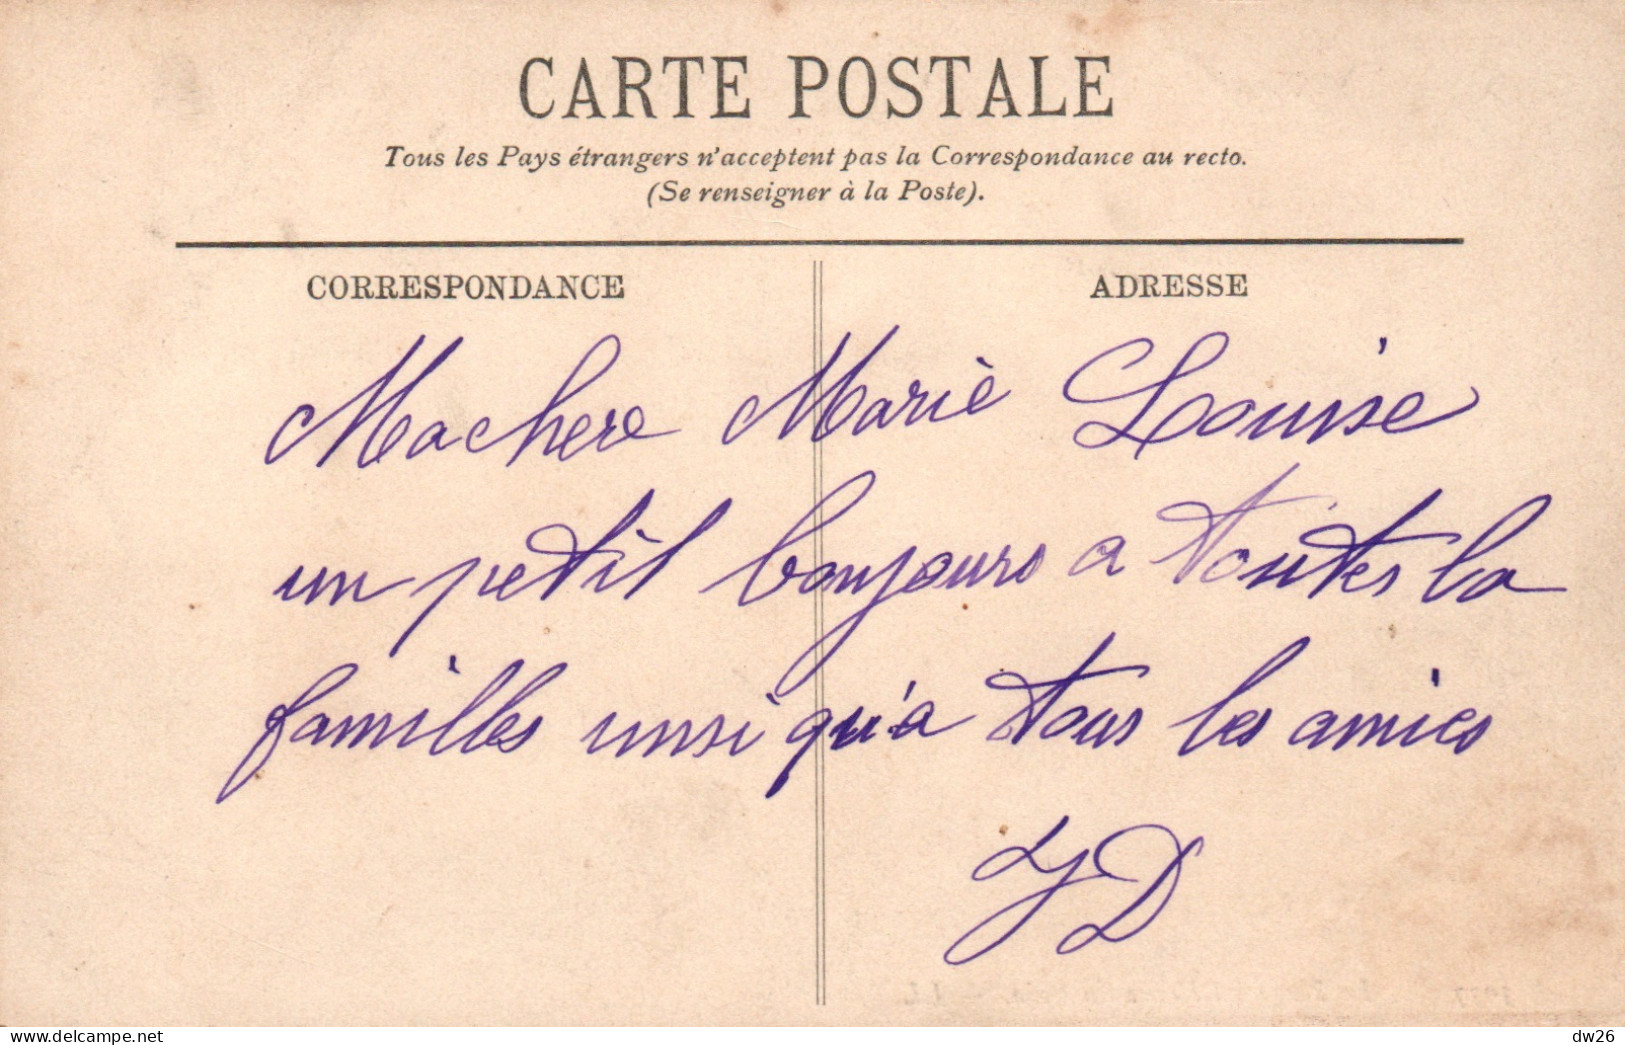 CARTE POSTALE
Tous les Pays étrangers n'acceptent pas la Correspondance au recto.
(Se renseigner à la Poste).
CORRESPONDANCE
ADRESSE
Machere Marie Louise
un petit bonjours a toutes la
familles unsi qu'a tous les amies
JD
dw26